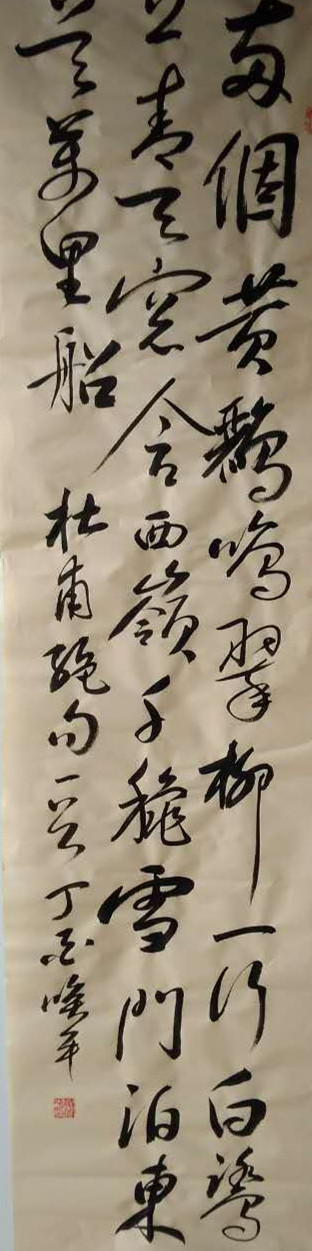 两個黄鸝鳴翠柳一行白鷺
上青天窓含西嶺千秋雪門泊東
吴萬里船 杜甫絶句一首 丁酉 年